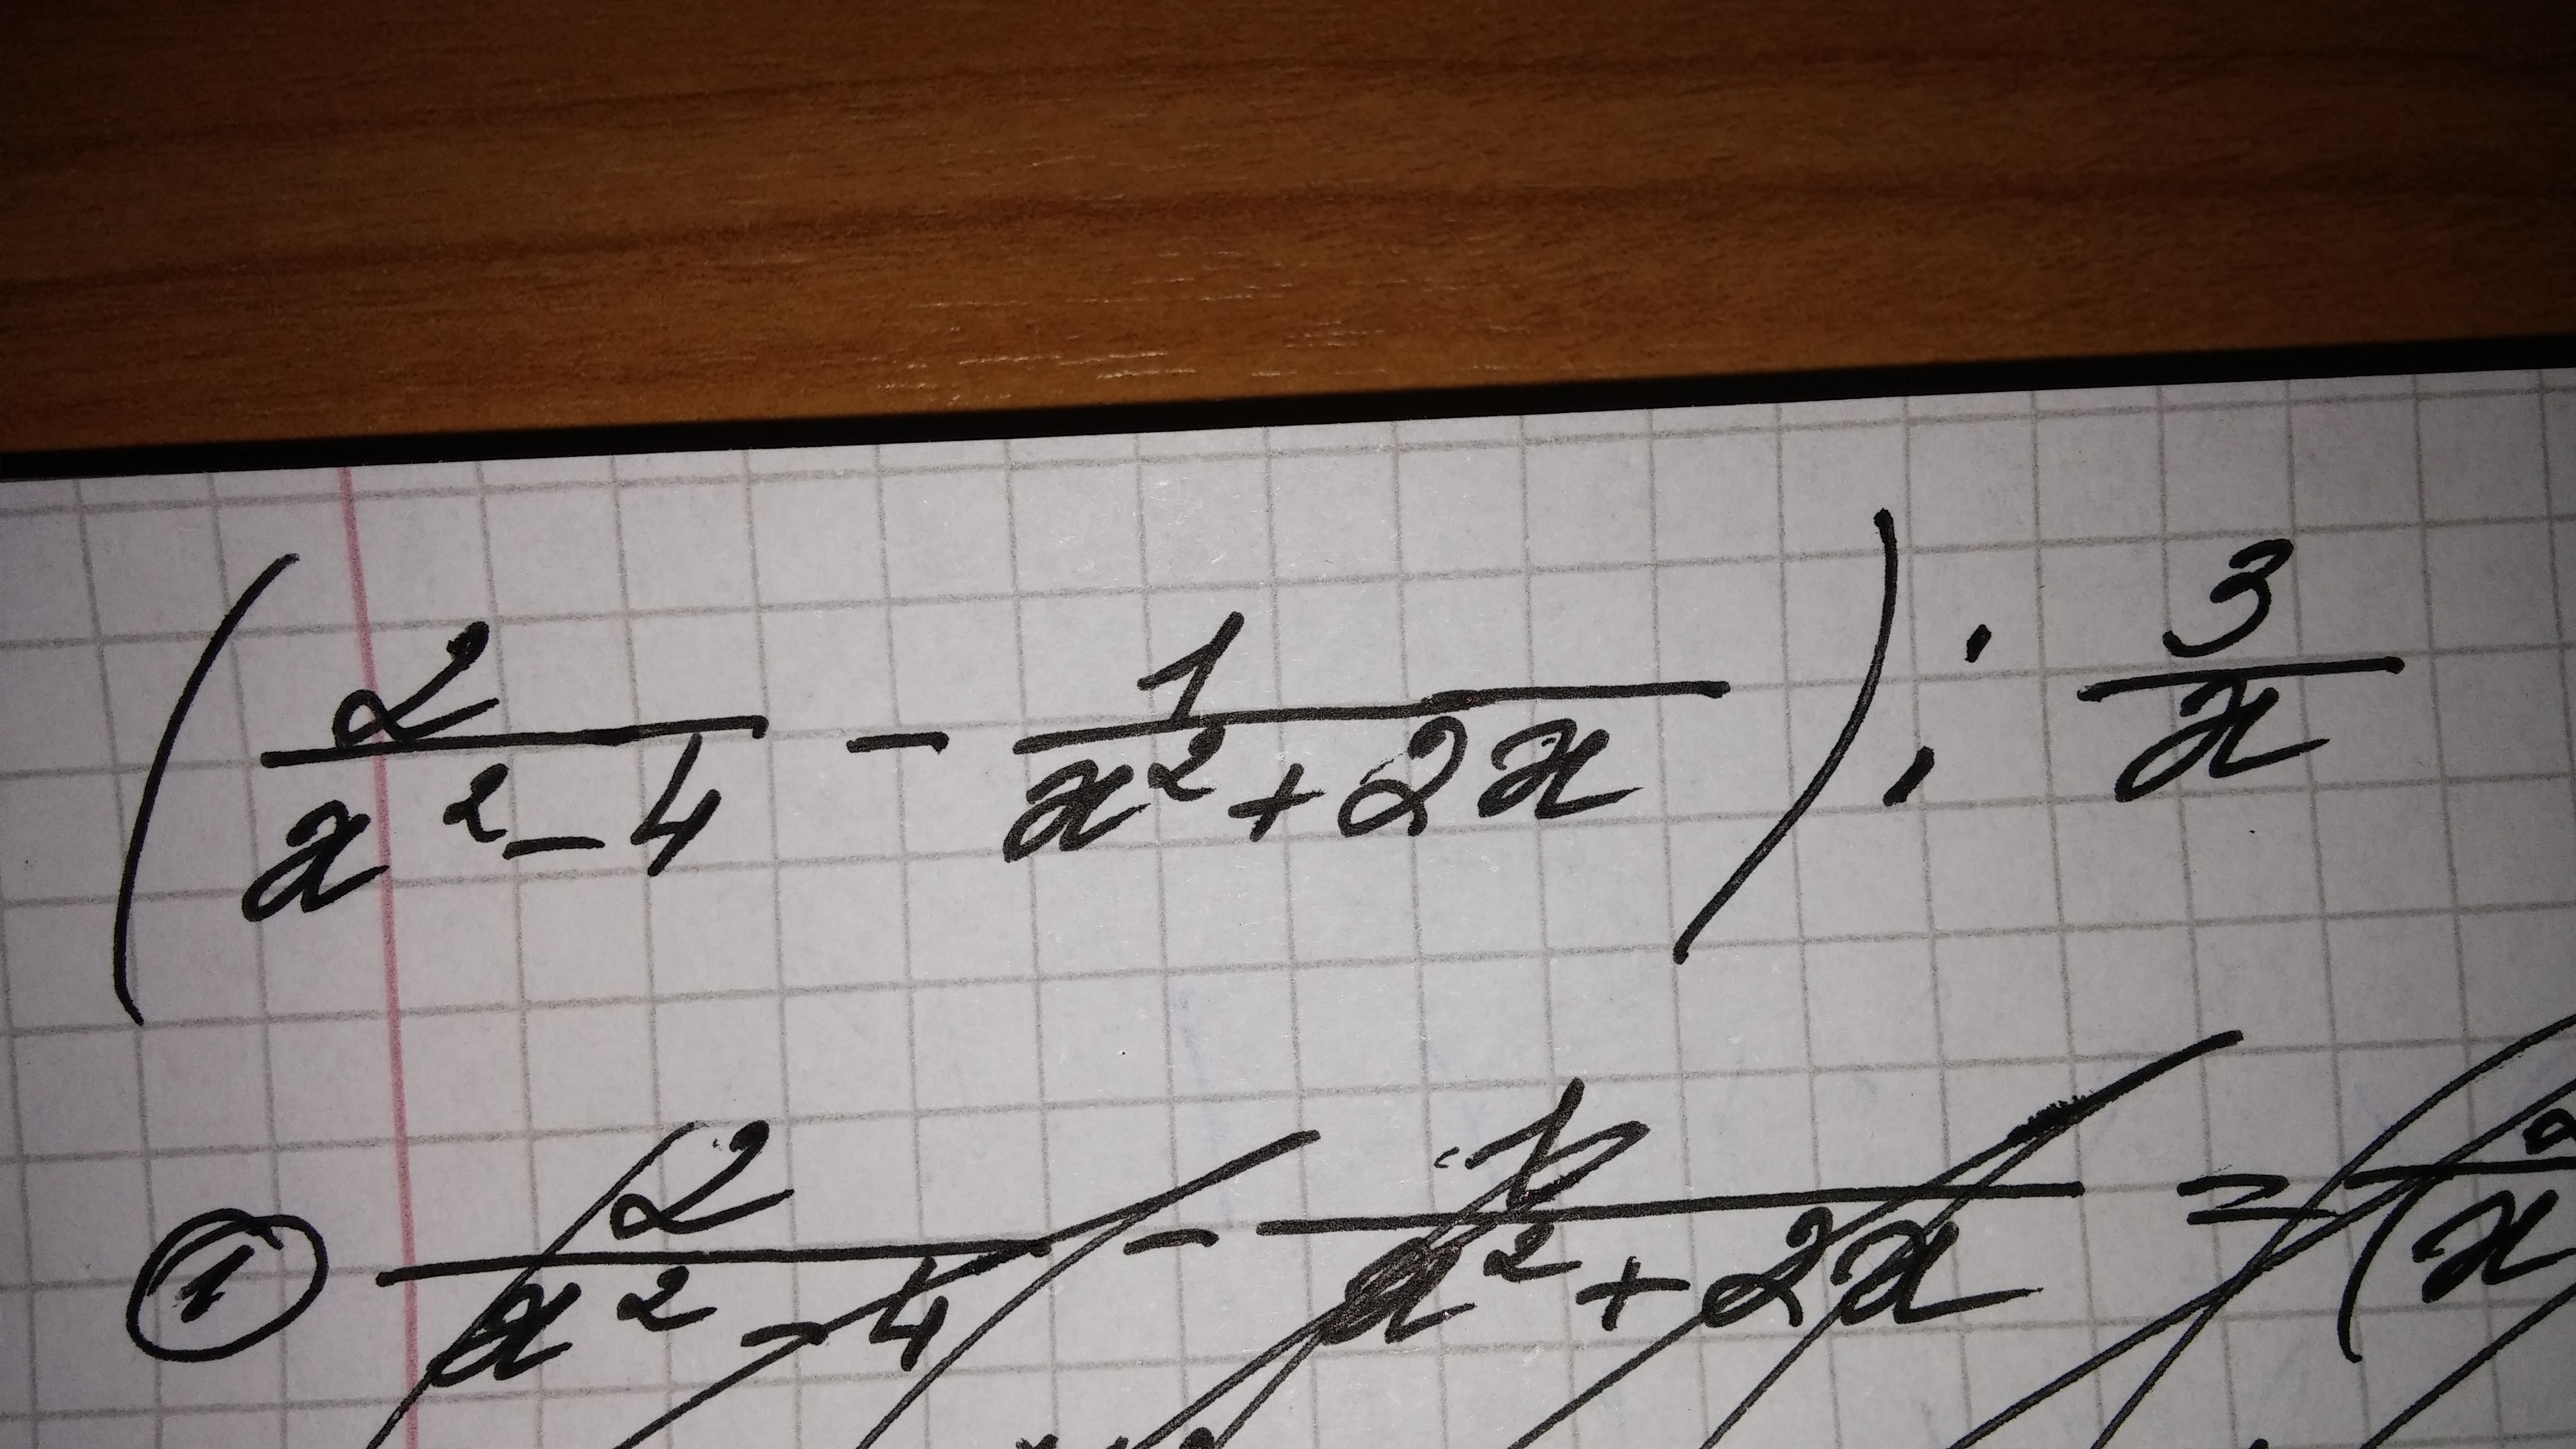 (2/(x²-4) - 1/(x²+2x)) : 3/x
① 2/(x²-4) - 1/(x²+2x) = (